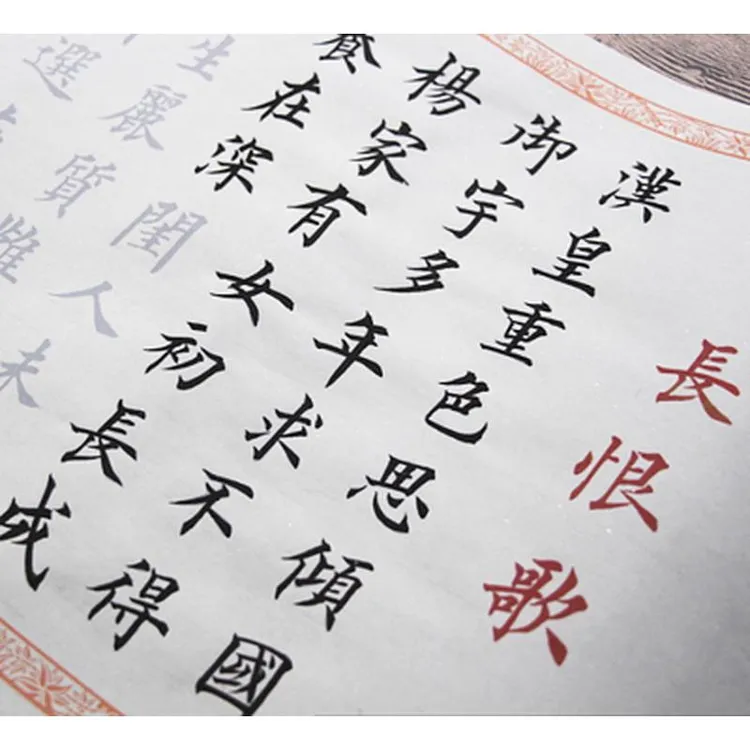 長恨歌
漢皇重色思傾國
御宇多年求不得
楊家有女初長成
養在深閨人未
生麗質難
選